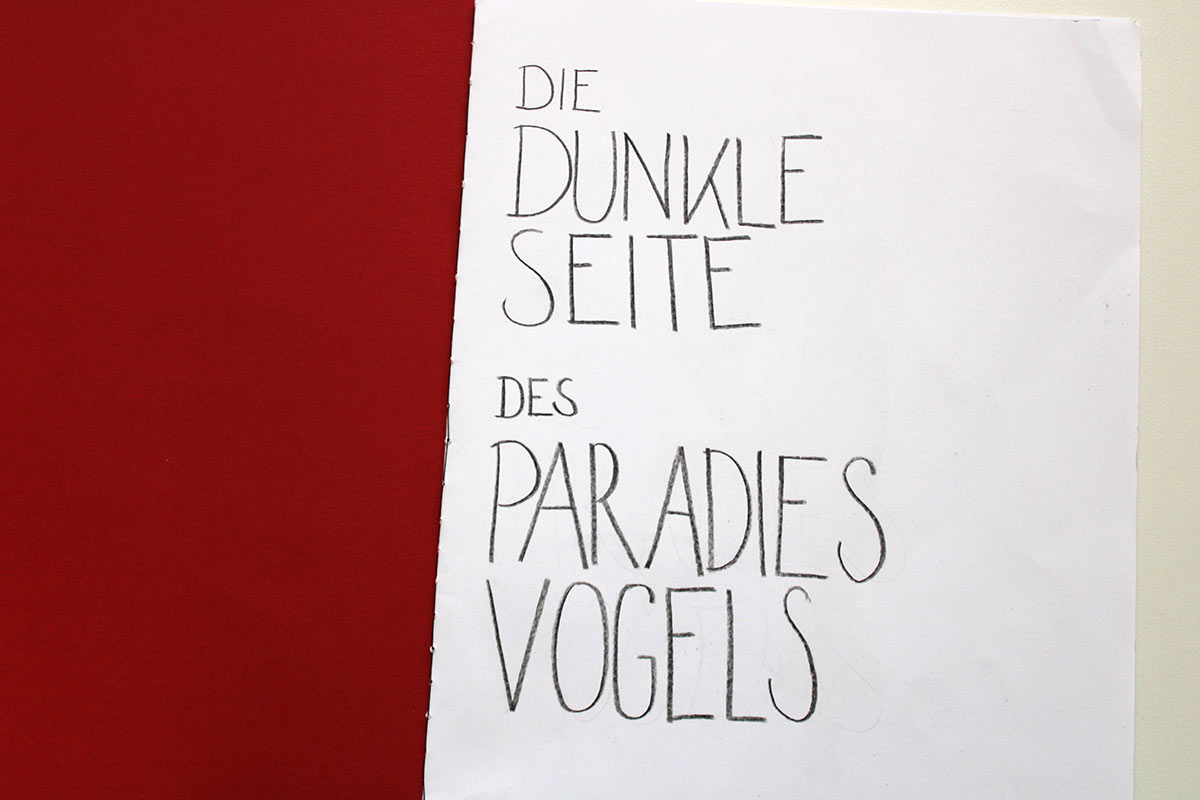 DIE
DUNKLE
SEITE
DES
PARADIES
VOGELS